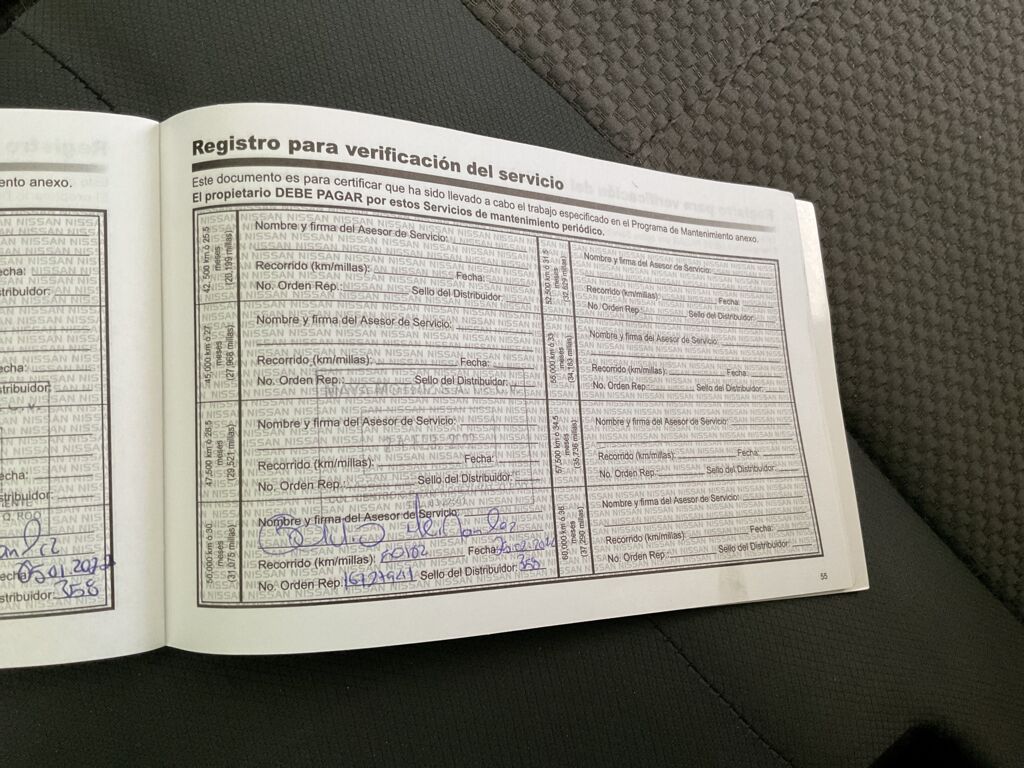 ento anexo.
echa:
stribuidor:
echa:
stribuidor:
echa:
stribuidor:
echa: 05.01.2022
stribuidor: 358
Registro para verificación del servicio
Este documento es para certificar que ha sido llevado a cabo el trabajo especificado en el Programa de Mantenimiento anexo.
El propietario DEBE PAGAR por estos Servicios de mantenimiento periódico.
42,500 km ó 25.5
meses
Nombre y firma del Asesor de Servicio:
Recorrido (km/millas): Fecha:
No. Orden Rep.: Sello del Distribuidor:
45,000 km ó 27
meses
(27,968 millas)
Nombre y firma del Asesor de Servicio:
Recorrido (km/millas): Fecha:
No. Orden Rep.: Sello del Distribuidor:
47,500 km ó 28.5
meses
(29,521 millas)
Nombre y firma del Asesor de Servicio:
Recorrido (km/millas): Fecha:
No. Orden Rep.: Sello del Distribuidor:
50,000 km ó 30
meses
(31,075 millas)
Nombre y firma del Asesor de Servicio:
Recorrido (km/millas): Fecha:
No. Orden Rep. Sello del Distribuidor: 358
52,500 km ó 31.5
meses
(32,629 millas)
Nombre y firma del Asesor de Servicio:
Recorrido (km/millas): Fecha:
No. Orden Rep.: Sello del Distribuidor:
55,000 km ó 33
meses
(34,183 millas)
Nombre y firma del Asesor de Servicio:
Recorrido (km/millas): Fecha:
No. Orden Rep.: Sello del Distribuidor:
57,500 km ó 34.5
meses
(35,736 millas)
Nombre y firma del Asesor de Servicio:
Recorrido (km/millas): Fecha:
No. Orden Rep.: Sello del Distribuidor:
60,000 km ó 36
meses
(37,290 millas)
Nombre y firma del Asesor de Servicio:
Recorrido (km/millas): Fecha:
No. Orden Rep.: Sello del Distribuidor:
55